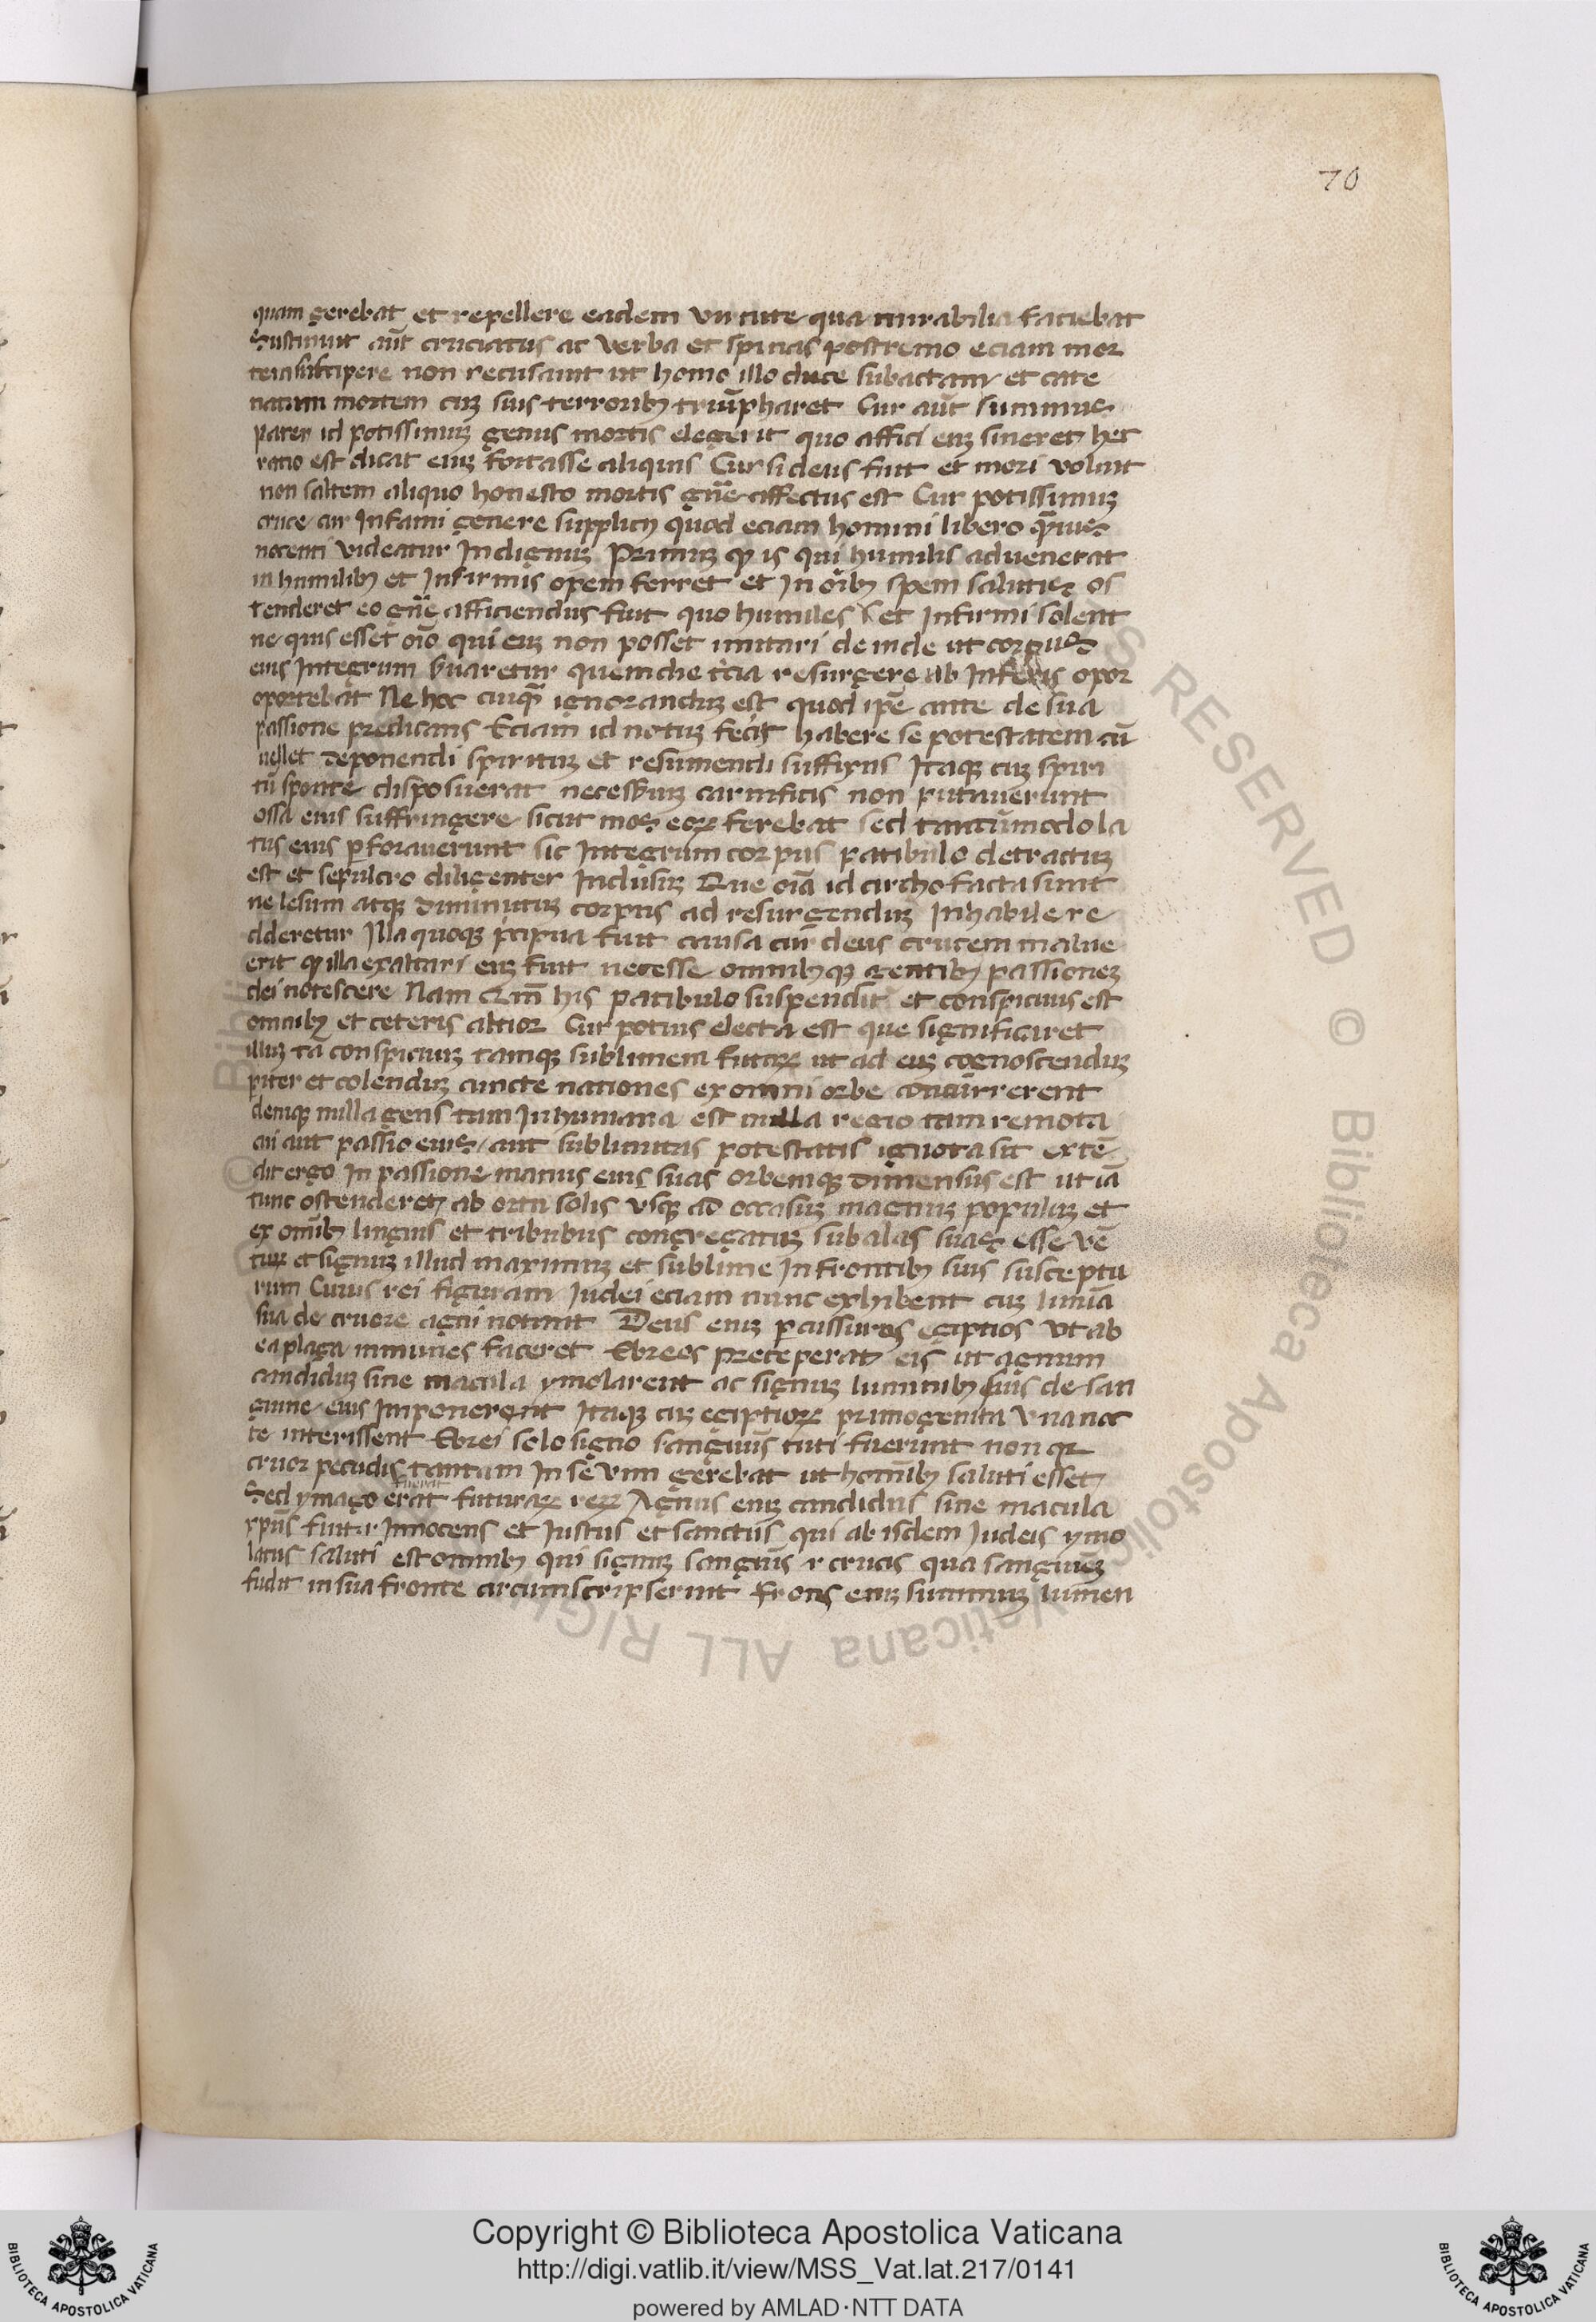 70
quam gerebat et repellere eadem virtute qua mirabilia faciebat
Sustinuit aūt cruciatus ac verba et spinas postremo eciam mor
tem suscipere non recusauit ut homo illo duce subactam et cate
natam mortem cuꝫ suis terroribꝫ triūpharet Cur aūt summus
pater id potissimuꝫ genus mortis elegerit quo affici euꝫ sineret hec
ratio est dicat enim fortasse aliquis Cur si deus fuit et mori voluit
non saltem aliquo honesto mortis gn̄e affectus est Cur potissimuꝫ
cruce cur Infami genere supplicij quod eciam homini libero q̄uis
nocenti videatur Indignuꝫ Primuꝫ ꝙ is qui humilis aduenerat
in humilibꝫ et Infirmis opem ferret et In oībꝫ spem salutis os
tenderet eo gn̄e afficiendus fuit quo humiles et Infirmi solent
ne quis esset oīo qui euꝫ non posset imitari deinde ut corpus
eius Integrum s̄uaretur quem die t̄cia resurgere ab Inferis opor
oportebat Ne hoc cuiq̄ ignoranduꝫ est quod ip̄e ante de sua
passione predicans Eciam id notuꝫ fecit habere se potestatem cū
uellet deponendi spirituꝫ et resumendi suffixus Itaqꝫ cuꝫ spiri
tū sponte disposuerat necess̄iuꝫ carnificis non putauerunt
ossa eius suffringere sicut mos eoꝝ ferebat sed tantūmodo la
tus eius ꝑforauerunt sic Integrum corpus patibulo detractuꝫ
est et sepulcro diligenter Inclusuꝫ Que oīa idcircho facta sunt
ne lesum atqꝫ diminutuꝫ corpus ad resurgenduꝫ Inhabile re
dderetur Illa quoqꝫ p̄cipua fuit causa cur deus crucem malue
erit ꝙ illa exaltari euꝫ fuit necesse omnibusqꝫ gentibꝫ passioneꝫ
dei notescere Nam Qm̄ his patibulo suspenditur et conspicuus est
omnibꝫ et ceteris altior Cur potius electa est que significaret
illuꝫ tā conspicuuꝫ tamqꝫ sublimem futuꝝ ut ad euꝫ cognoscenduꝫ
ꝑiter et colenduꝫ cuncte nationes ex omni orbe concurrerent
deniqꝫ nulla gens tam Inhumana est nulla regio tam remota
cui aut passio eius aut sublimitas potestatis ignota sit extē
dit ergo In passione manus eius suas orbemqꝫ dimensus est ut iā
tunc ostenderet ab ortu solis usqꝫ ad occasuꝫ magnuꝫ populuꝫ et
ex oīmbꝫ linguis et tribubus congregatuꝫ sub alas suas esse vē
tuꝝ et signuꝫ illud maximuꝫ et sublime In frontibꝫ suis susceptu
rum Cuius rei figuram Iudei eciam nunc exhibent cuꝫ limīa
sua de cruore agni notant Deus enim ꝑcussuros egiptios ut ab
ea plaga inmunes faceret Ebreos preceperat eis ut agnum
candiduꝫ sine macula ymolarent ac signuꝫ liminibꝫ suis de san
guine eius Imponerent Itaqꝫ cuꝫ egiptioꝝ primogenita una noc
te interissent Ebrei solo signo sanguīs tuti fuerunt non qꝛ
cruor pecudis tantam In se vim gerebat ut homībꝫ saluti esset
Sed ymago erat futuraꝝ reꝝ Agnus enim candidus sine macula
xp̄us fuit Innocens et Iustus et sanctus qui ab isdem Iudeis ymo
latus saluti est omnibꝫ qui signuꝫ sanguīs ⁊ crucis qua sanguineꝫ
fudit in sua fronte circumscripserint Frons enim summuꝫ limen
Copyright © Biblioteca Apostolica Vaticana
http://digi.vatlib.it/view/MSS_Vat.lat.217/0141
powered by AMLAD·NTT DATA